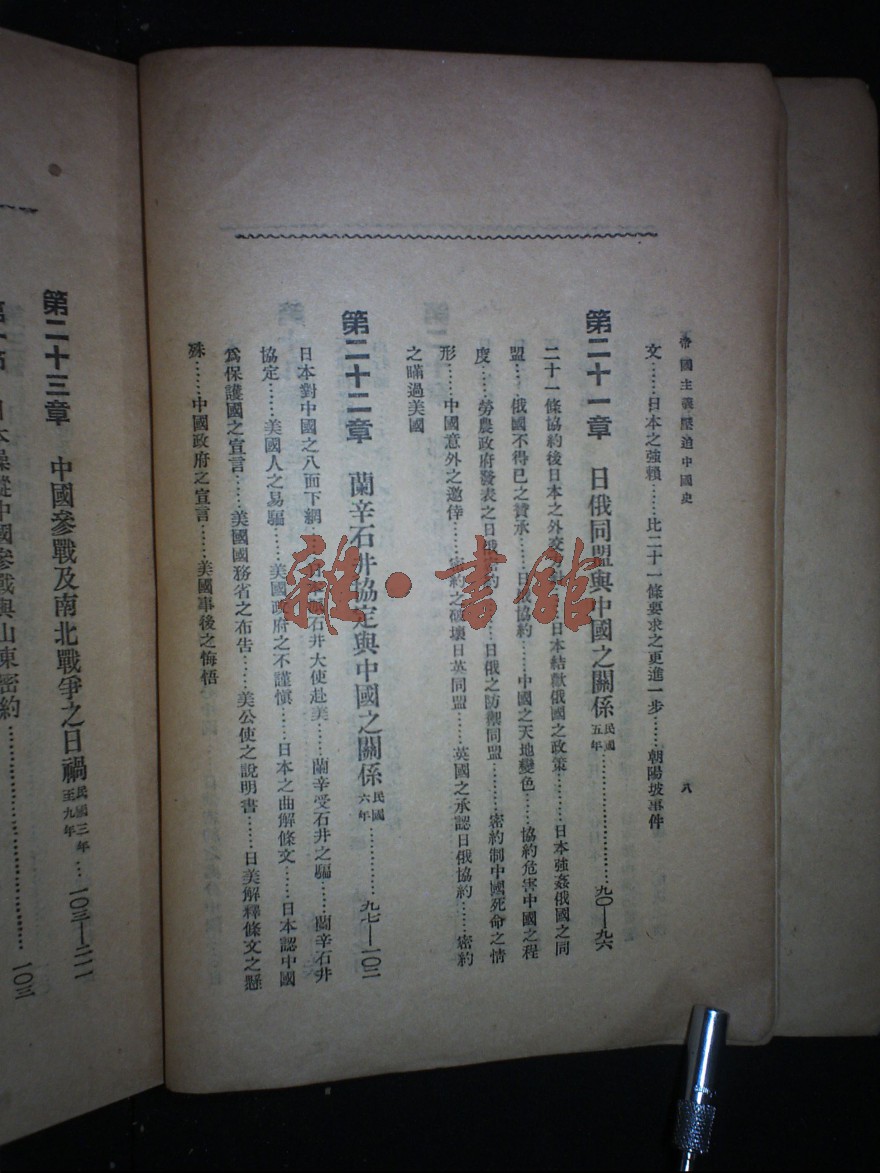 帝國主義壓迫中國史
八
文……日本之強賴……比二十一條要求之更進一步……朝陽坡事件
第二十一章 日俄同盟與中國之關係 民國五年……九〇—九六
二十一條協約後日本之外交……日本結歡俄國之政策……日本強姦俄國之同
盟……俄國不得已之贊承……日俄協約……中國之天地變色……協約危害中國之程
度……勞農政府發表之日俄密約……日俄之防禦同盟……密約制中國死命之情
形……中國意外之邀倖……密約之破壞日英同盟……英國之承認日俄協約……密約
之瞞過美國
第二十二章 蘭辛石井協定與中國之關係 民國六年……九七—一〇二
日本對中國之八面下網……石井大使赴美……蘭辛受石井之騙……蘭辛石井
協定……美國人之易騙……美國政府之不謹愼……日本之曲解條文……日本認中國
爲保護國之宣言……美國國務省之布告……美公使之說明書……日美解釋條文之懸
殊……中國政府之宣言……美國事後之悔悟
第二十三章 中國參戰及南北戰爭之日禍 民國三年至九年…一〇三—二一一
日本操縱中國參戰與山東密約……一〇三
雜·書館